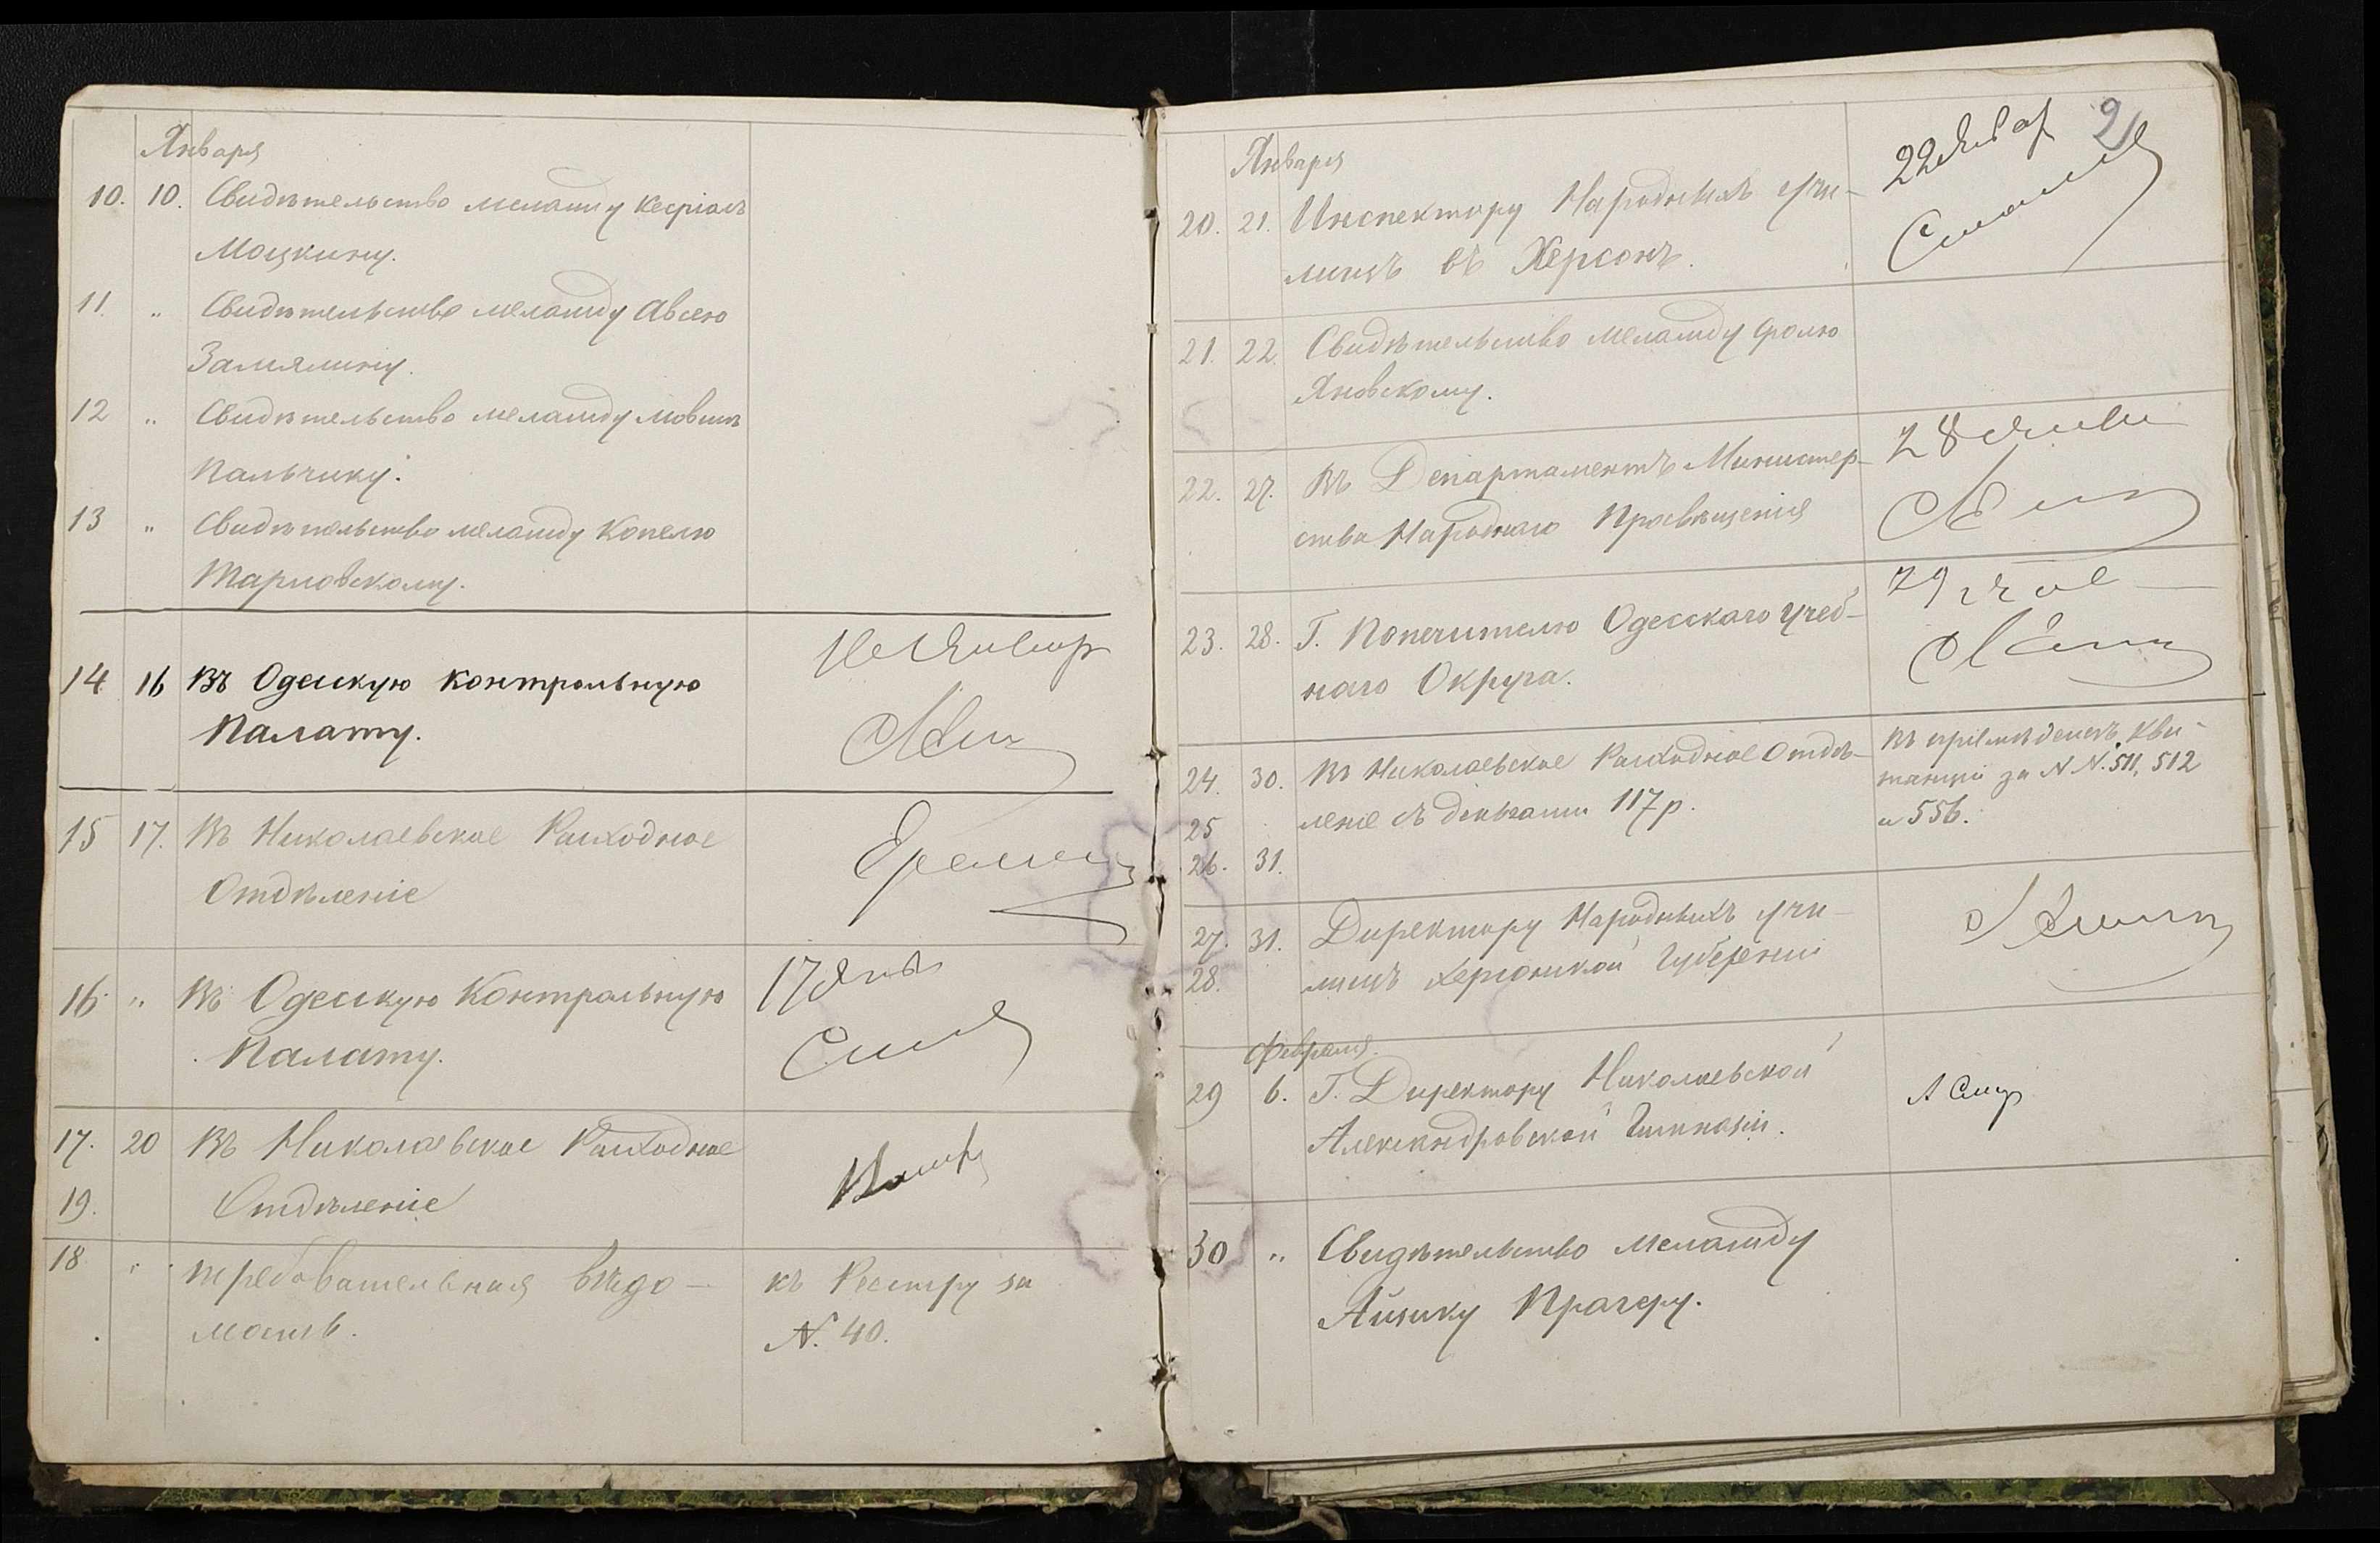 Января
10. 10. Свидѣтельство меламду Кесріалъ
Моцкину.
11. " Свидѣтельство меламду Авсею
Замялину.
12 " Свидѣтельство меламду Мовшѣ
Пальчику.
13 " Свидѣтельство меламду Копелю
Тарновскому.
14 16 Въ Одесскую Контрольную
Палату.
15 17. Въ Николаевское Расходное
Отдѣленіе
16. " Въ Одесскую Контрольную
17 Янв
Палату.
17. 20 Въ Николаевское Расходное
19. Отдѣленіе
18 " требовательная вѣдо-
мость.
къ Реестру за
N. 40.
2
Января
22 Январ
20. 21. Инспектору Народныхъ учи-
лищъ въ Херсонѣ.
21. 22 Свидѣтельство меламду Фролю
Яновскому.
22. 27. Въ Департаментъ Министер-
ства Народнаго Просвѣщенія
28
23. 28. Г. Попечителю Одесскаго Учеб-
наго Округа.
29
24. 30. Въ Николаевское Расходное Отдѣ-
25 леніе съ деньгами 117 р.
26. 31.
Въ пріемѣ денегъ кви-
танціи за N N. 511, 512
и 556.
27. 31. Директору Народныхъ учи-
28. лищъ Херсонской Губерніи
Февраля.
29 6. Г. Директору Николаевской
Александровской Гимназіи.
30 " Свидѣтельство меламду
Айзику Прагеру.